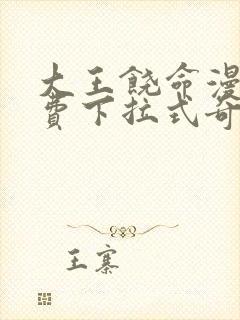 大王饶命漫
费下拉式奇
王寨